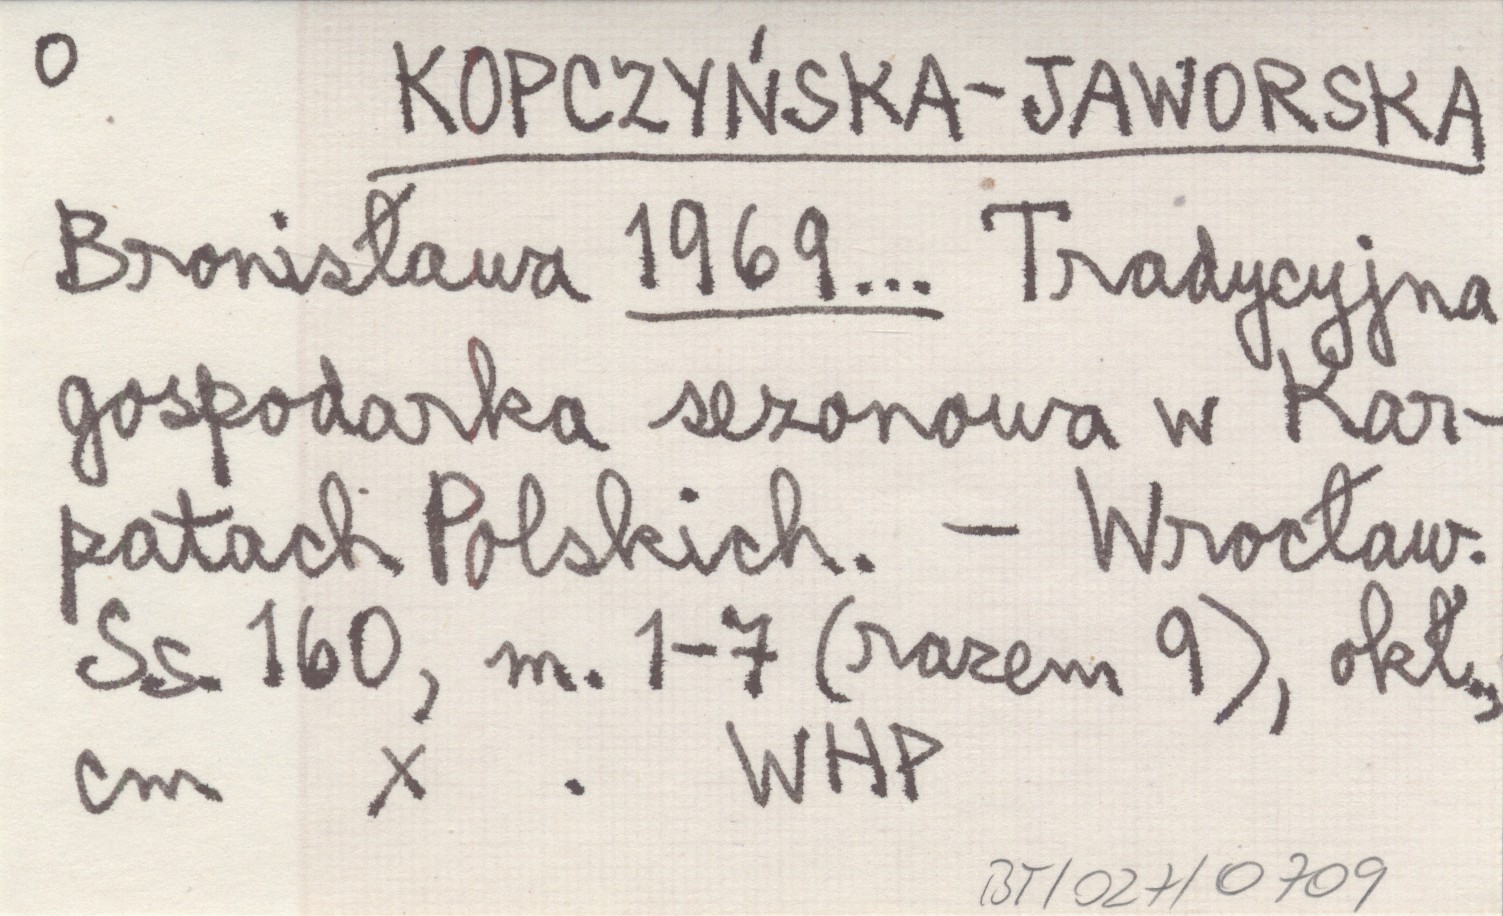 O KOPCZYŃSKA-JAWORSKA
Bronisława 1969... Tradycyjna
gospodarka sezonowa w Kar-
patach Polskich. - Wrocław.
Ss. 160, m. 1-7 (razem 9), okł.,
cm x . WHP
BT/027/0709